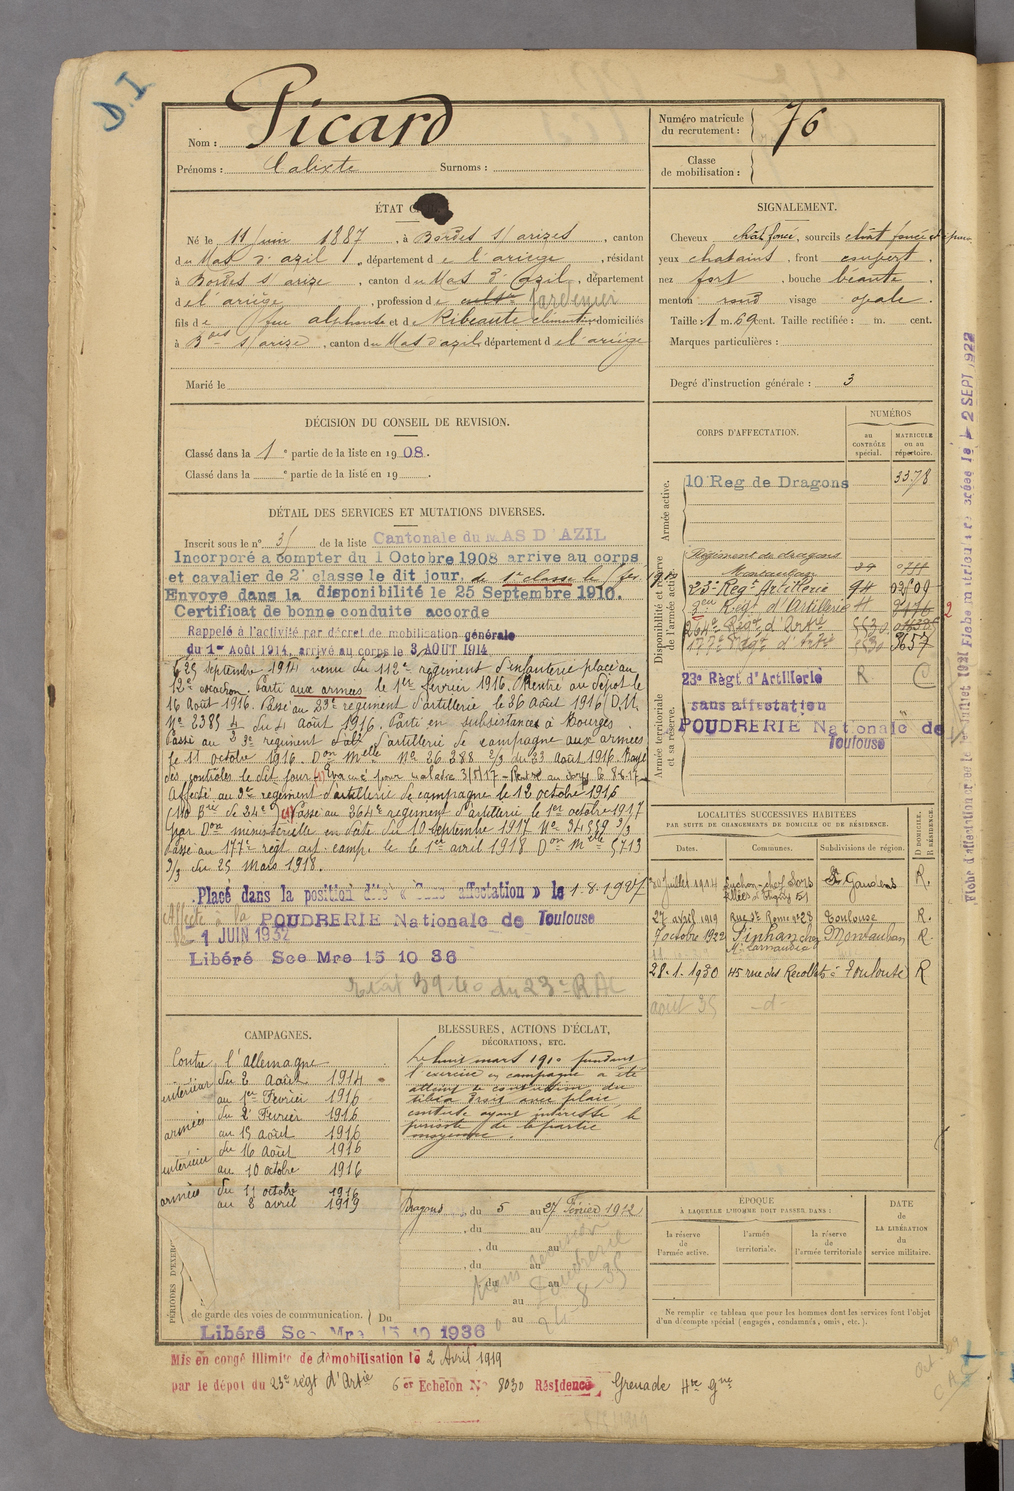 D.I.
Nom : Picard
Prénoms : Calixte Surnoms :
Numéro matricule du recrutement : 76
Classe de mobilisation :
ÉTAT
Né le 11 Juin 1887, à Bordes s/ arizes, canton
du Mas d'azil, département de l'ariège, résidant
à Bordes s/ arize, canton du Mas d'azil, département
de l'ariège, profession de cultr Jardinier
fils de feu alphonse et de Ribeaute clémentine domiciliés
à Bdes s/ arize, canton du Mas d'azil, département de l'ariège
Marié le
SIGNALEMENT.
Cheveux chât foncé, sourcils chât foncé
yeux chatains, front couvert,
nez fort, bouche béante,
menton rond visage opale.
Taille : 1 m. 69 cent. Taille rectifiée : m. cent.
Marques particulières :
Degré d'instruction générale : 3
DÉCISION DU CONSEIL DE REVISION.
Classé dans la 1e partie de la liste en 1908.
Classé dans la e partie de la liste en 19 .
DÉTAIL DES SERVICES ET MUTATIONS DIVERSES.
Inscrit sous le n° 31 de la liste Cantonale du MAS D'AZIL
Incorporé à compter du 1 Octobre 1908 arrive au corps
et cavalier de 2e classe le dit jour. de 1e classe le
Envoye dans la disponibilité le 25 Septembre 1910.
Certificat de bonne conduite accorde
Rappelé à l'activité par décret de mobilisation générale
du 1er Août 1914, arrivé au corps le 3 AOUT 1914
25 septembre 1914 venu du 112e régiment d'infanterie placé au
12e escadron. Parti aux armées le 1er février 1916. Rentré au dépôt le
16 Août 1916. Passé au 23e régiment d'artillerie le 36 Août 1916 D.M.
N° 2385 4 du 4 Août 1916. Parti en subsistances à Bourges
Passé au 3e régiment d'artillerie de campagne aux armées
le 11 octobre 1916. Don Melle N° 26.288 2/3 du 23 Août 1916. Rayé
des contrôles le dit jour (1) Evacué pour maladie 3/5/17 - Rentré au corps le 8-8-17
Affecté au 3e régiment d'artillerie de campagne le 12 octobre 1916
(1) Passé au 364e régiment d'artillerie le 1er octobre 1917
par Don ministérielle en date du 10 septembre 1917 N° 34559 2/3
Passé au 177e régt art. camp. le 1er avril 1918 Don Melle 5713
3/3 du 25 Mars 1918.
Placé dans la position dite « Sans affectation » le 1-8-1927
Affecté à la POUDRERIE Nationale de Toulouse
le 1 JUIN 1932
Libéré Sce Mre 15 10 36
Etat 39-40 du 23e RAC
CORPS D'AFFECTATION.
NUMÉROS
au CONTRÔLE spécial.
MATRICULE ou au répertoire.
Armée active.
10 Reg de Dragons 3378
Disponibilité et réserve de l'armée active.
Régiment de dragons
Montauban
23e Regt Artillerie 94
Regt d'Artillerie
264e Régt d'Artie
177e Régt d'Artie 3657
Armée territoriale et sa réserve.
23e Règt d'Artillerie R C
sans affectation
POUDRERIE Nationale de
Toulouse
LOCALITÉS SUCCESSIVES HABITÉES
PAR SUITE DE CHANGEMENTS DE DOMICILE OU DE RÉSIDENCE.
Dates. Communes. Subdivisions de région. D DOMICILE. R RÉSIDENCE
30 Juillet 1914 Luchon St Gaudens R.
27 avril 1919 Rue St Rome n° 28 Toulouse R.
7 octobre 1922 Montauban R.
28-1-1930 45 rue des Recollets à Toulouse R
août 35 -d-
CAMPAGNES.
Contre l'Allemagne
intérieur du 2 Août 1914
au 1er Février 1916
armées du 2 Février 1916
au 15 août 1916
intérieur du 16 Août 1916
au 10 octobre 1916
armées du 11 octobre 1916
au 2 avril 1919
BLESSURES, ACTIONS D'ÉCLAT,
DÉCORATIONS, ETC.
Le huit mars 1910 pendant
l'exercice en campagne a été
atteint de contusion du
tibia droit avec plaie
contuse ayant intéressé le
périoste de la partie
moyenne.
PÉRIODES D'EXER
Dragons, du 5 au 27 Février 1912
, du au
, du au
, du au
du au
au
Poudrerie
de garde des voies de communication. Du au
Libéré Sce Mre 15 10 1936
ÉPOQUE
À LAQUELLE L'HOMME DOIT PASSER DANS :
la réserve de l'armée active.
l'armée territoriale.
la réserve de l'armée territoriale
DATE de LA LIBÉRATION du service militaire.
Ne remplir ce tableau que pour les hommes dont les services font l'objet
d'un décompte spécial (engagés, condamnés, omis, etc.).
Mis en congé illimité de démobilisation le 2 Avril 1919
par le dépôt du 23e régt d'Artie 6er Echelon N° 8030 Résidence Grenade Hte Gne